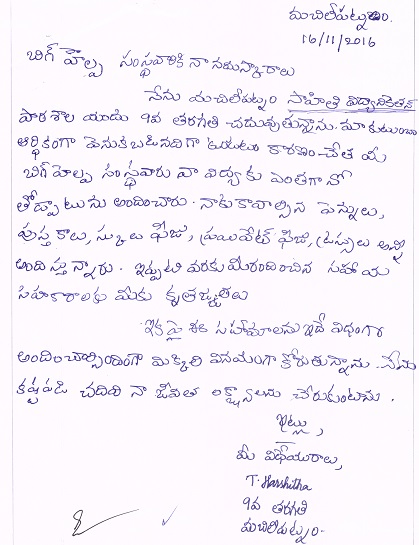 మచిలీపట్నం.
16/11/2016
బిగ్ హెల్ప్ సంస్థవారికి నా నమస్కారాలు
నేను మచిలీపట్నం సాహితి విద్యానికేతన్
పాఠశాల యందు 9వ తరగతి చదువుతున్నాను. మా కుటుంబం
ఆర్థికంగా వెనుకబడినదిగా కారణం చేత మీ
బిగ్ హెల్ప్ సంస్థవారు నా విద్యకు ఎంతగానో
తోడ్పాటును అందించారు. నాకు కావాల్సిన పెన్నులు,
పుస్తకాలు, స్కులు ఫీజు, ప్రయివేట్ ఫీజు, డ్రస్సులు అన్నీ
అందిస్తున్నారు. ఇప్పటి వరకు మీరందించిన సహాయ
సహకారాలకు మీకు కృతజ్ఞతలు
ఇకపై కూడా సహాయాలను ఇదే విధంగా
అందించాల్సిందిగా మిక్కిలి వినయంగా కోరుతున్నాను. నేను
కష్టపడి చదివి నా జీవిత లక్ష్యాలను చేరుకుంటాను.
ఇట్లు,
మీ విధేయురాలు,
T. Harshitha
9వ తరగతి
మచిలీపట్నం.